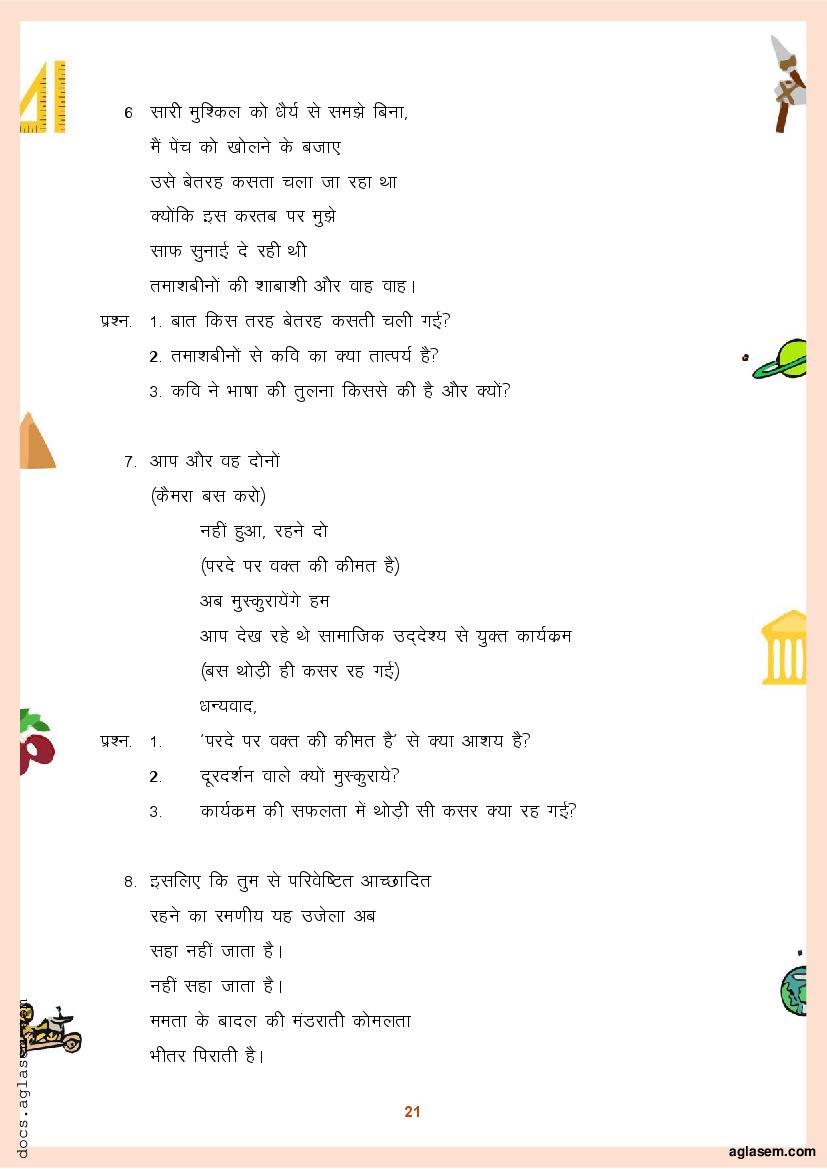 6 सारी मुश्किल को धैर्य से समझे बिना,
मैं पेंच को खोलने के बजाए
उसे बेतरह कसता चला जा रहा था
क्योंकि इस करतब पर मुझे
साफ सुनाई दे रही थी
तमाशबीनों की शाबाशी और वाह वाह।
प्रश्न. 1. बात किस तरह बेतरह कसती चली गई?
2. तमाशबीनों से कवि का क्या तात्पर्य है?
3. कवि ने भाषा की तुलना किससे की है और क्यों?
7. आप और वह दोनों
(कैमरा बस करो)
नहीं हुआ, रहने दो
(परदे पर वक्त की कीमत है)
अब मुस्कुरायेंगे हम
आप देख रहे थे सामाजिक उद्देश्य से युक्त कार्यक्रम
(बस थोड़ी ही कसर रह गई)
धन्यवाद,
प्रश्न. 1. 'परदे पर वक्त की कीमत है' से क्या आशय है?
2. दूरदर्शन वाले क्यों मुस्कुराये?
3. कार्यक्रम की सफलता में थोड़ी सी कसर क्या रह गई?
8. इसलिए कि तुम से परिवेष्टित आच्छादित
रहने का रमणीय यह उजेला अब
सहा नहीं जाता है।
नहीं सहा जाता है।
ममता के बादल की मंडराती कोमलता
भीतर पिराती है।
21
docs.aglasem.com
aglasem.com